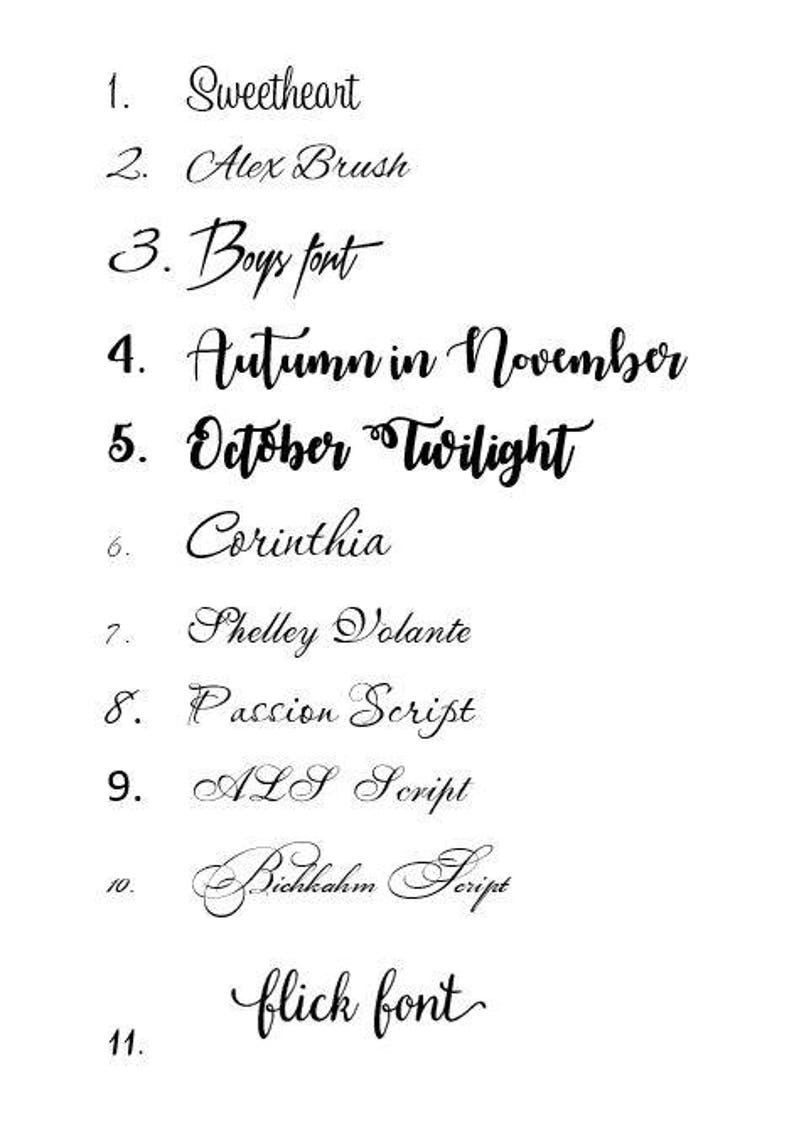 1. Sweetheart
2. Alex Brush
3. Boys font
4. Autumn in November
5. October Twilight
6. Corinthia
7. Shelley Volante
8. Passion Script
9. ALS Script
10. Bickkahm Script
11. flick font